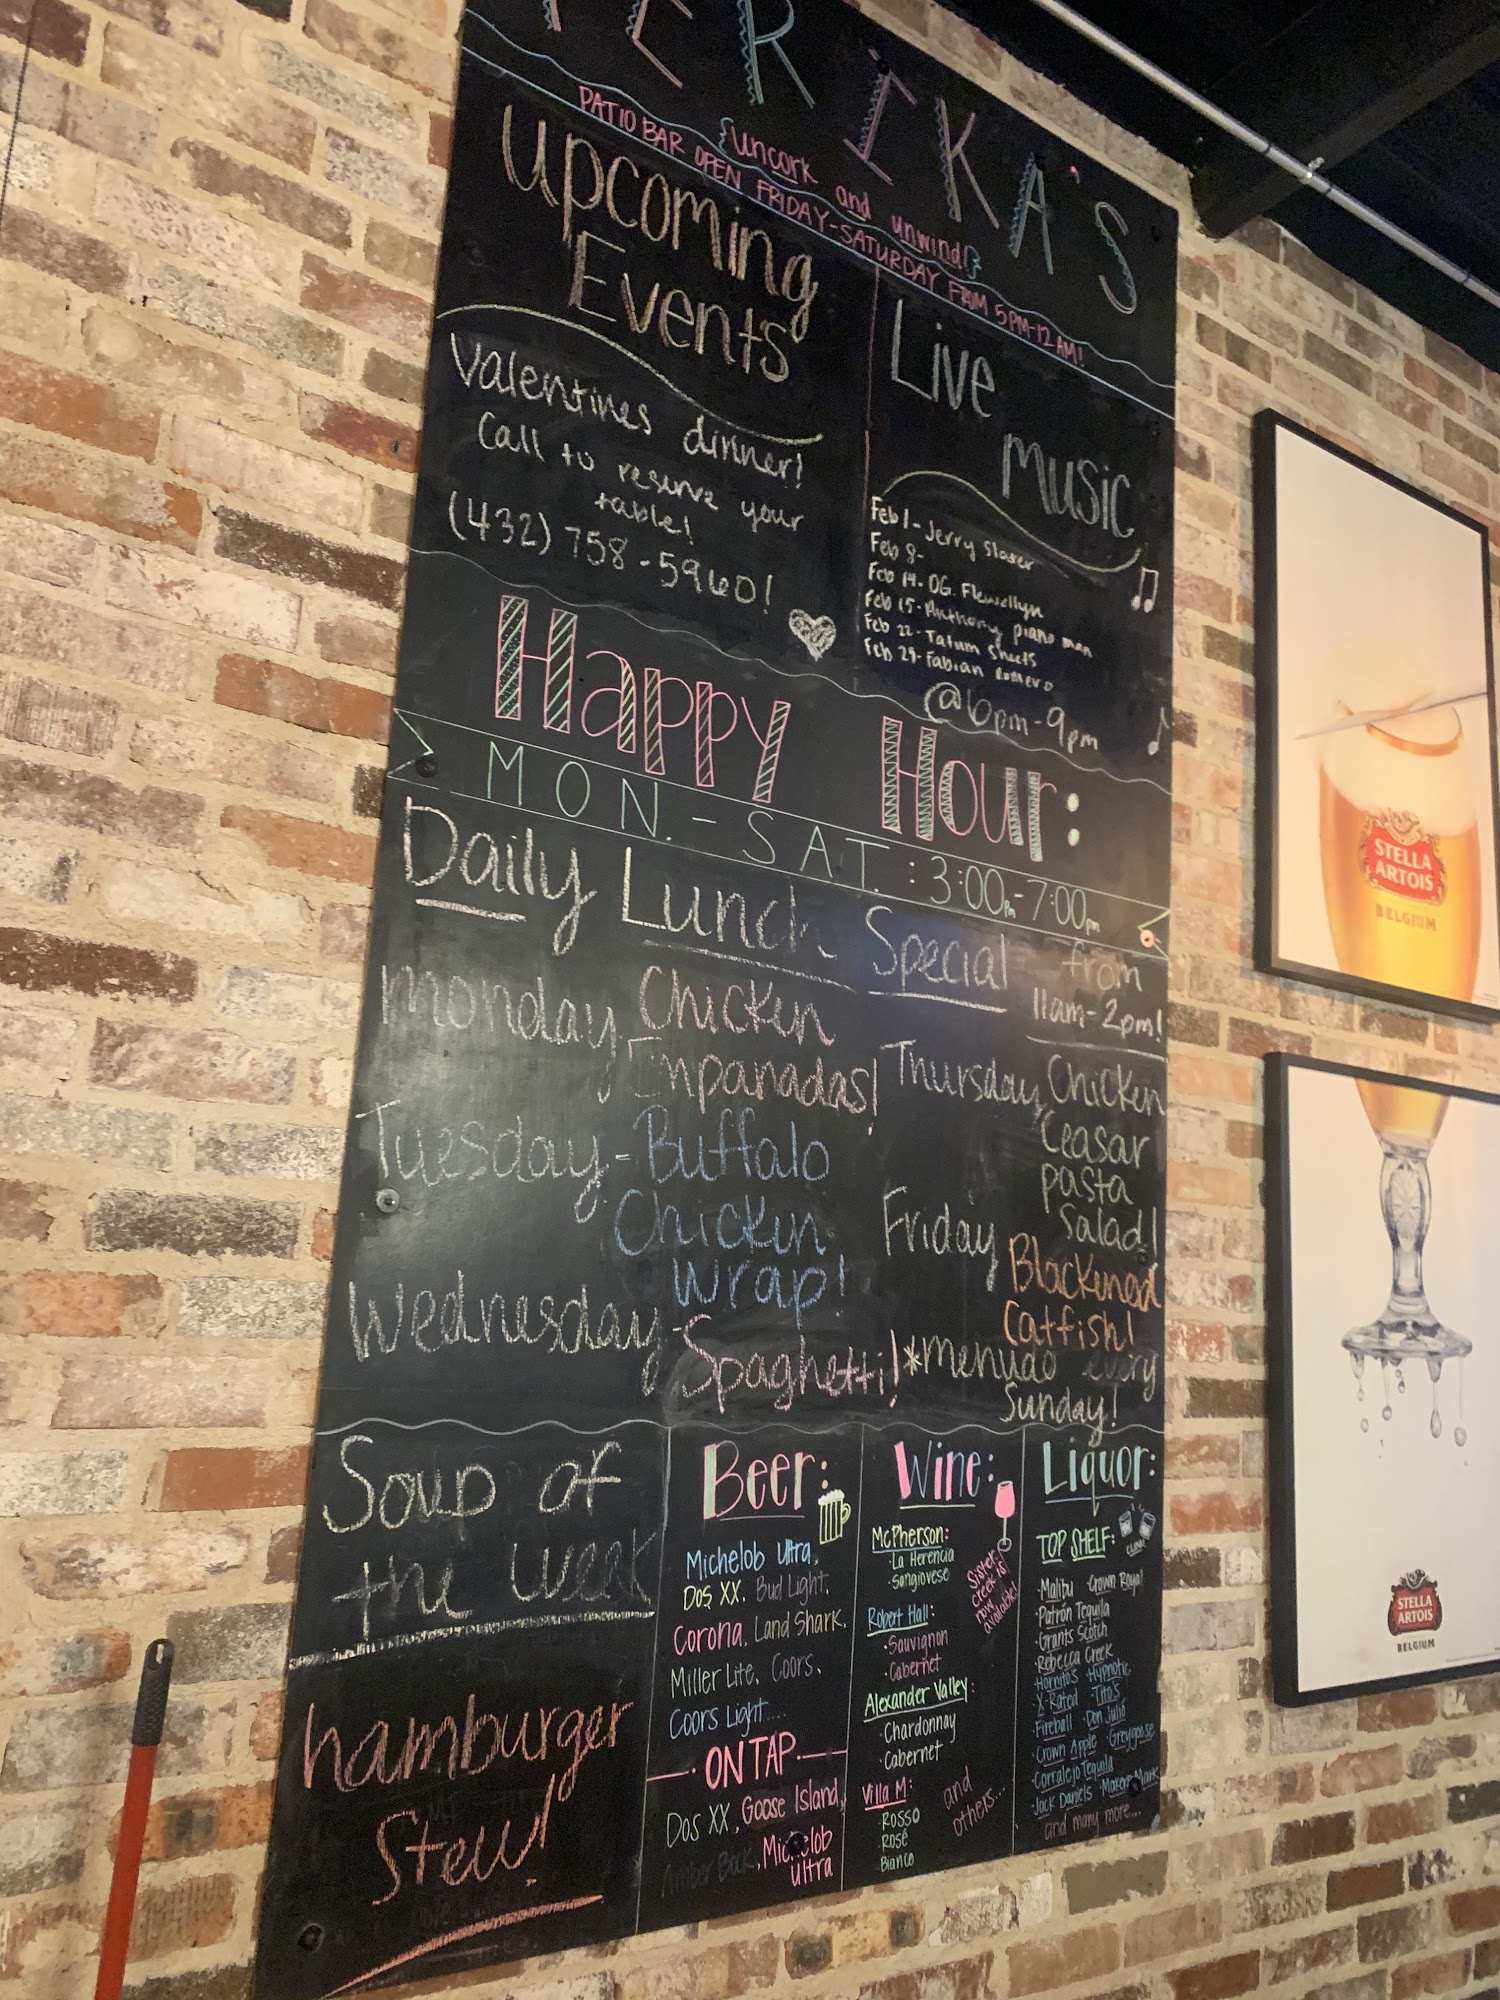 ERIKA'S
{uncork and unwind!}
PATIO BAR OPEN FRIDAY-SATURDAY FROM 5PM-12AM!
Upcoming
Events
Valentines dinner!
Call to reserve your
table!
(432) 758-5960!
Live
Music
Feb 1-Jerry Slaser
Feb 8-
Feb 14-OG. Flewellyn
Feb 15-Anthony piano man
Feb 22-Tatum Sheets
Feb 29-Fabian Romero
@6pm-9pm
Happy Hour:
MON.-SAT.:3:00pm-7:00pm
Daily Lunch Special from
11am-2pm!
Monday Chicken
Empanadas!
Tuesday-Buffalo
Chicken
Wrap!
Wednesday-
Spaghetti!
Thursday Chicken
Ceasar
pasta
Salad!
Friday Blackened
Catfish!
*menudo every
Sunday!
Soup of
the week
hamburger
Stew!
Beer:
Michelob Ultra,
Dos XX, Bud Light,
Corona, Land Shark,
Miller Lite, Coors,
Coors Light....
ON TAP
Dos XX, Goose Island,
Amber Bock, Michelob
Ultra
Wine:
McPherson:
·La Herencia
·Sangiovese
Sister
creek is
now
available!
Robert Hall:
·Sauvignon
·Cabernet
Alexander Valley:
·Chardonnay
·Cabernet
Villa M:
·Rosso
·Rosé
·Bianco
and
others...
Liquor:
TOP SHELF:
CLINK
·Malibu ·Crown Royal
·Patrón Tequila
·Grants Scotch
·Rebecca Creek
·Hornitos ·Hypnotic
·X-Rated ·Tito's
·Fireball ·Don Julio
·Crown Apple ·Greygoose
·Corralejo Tequila
·Jack Daniels ·Makers Mark
and many more...
STELLA
ARTOIS
BELGIUM
STELLA
ARTOIS
BELGIUM